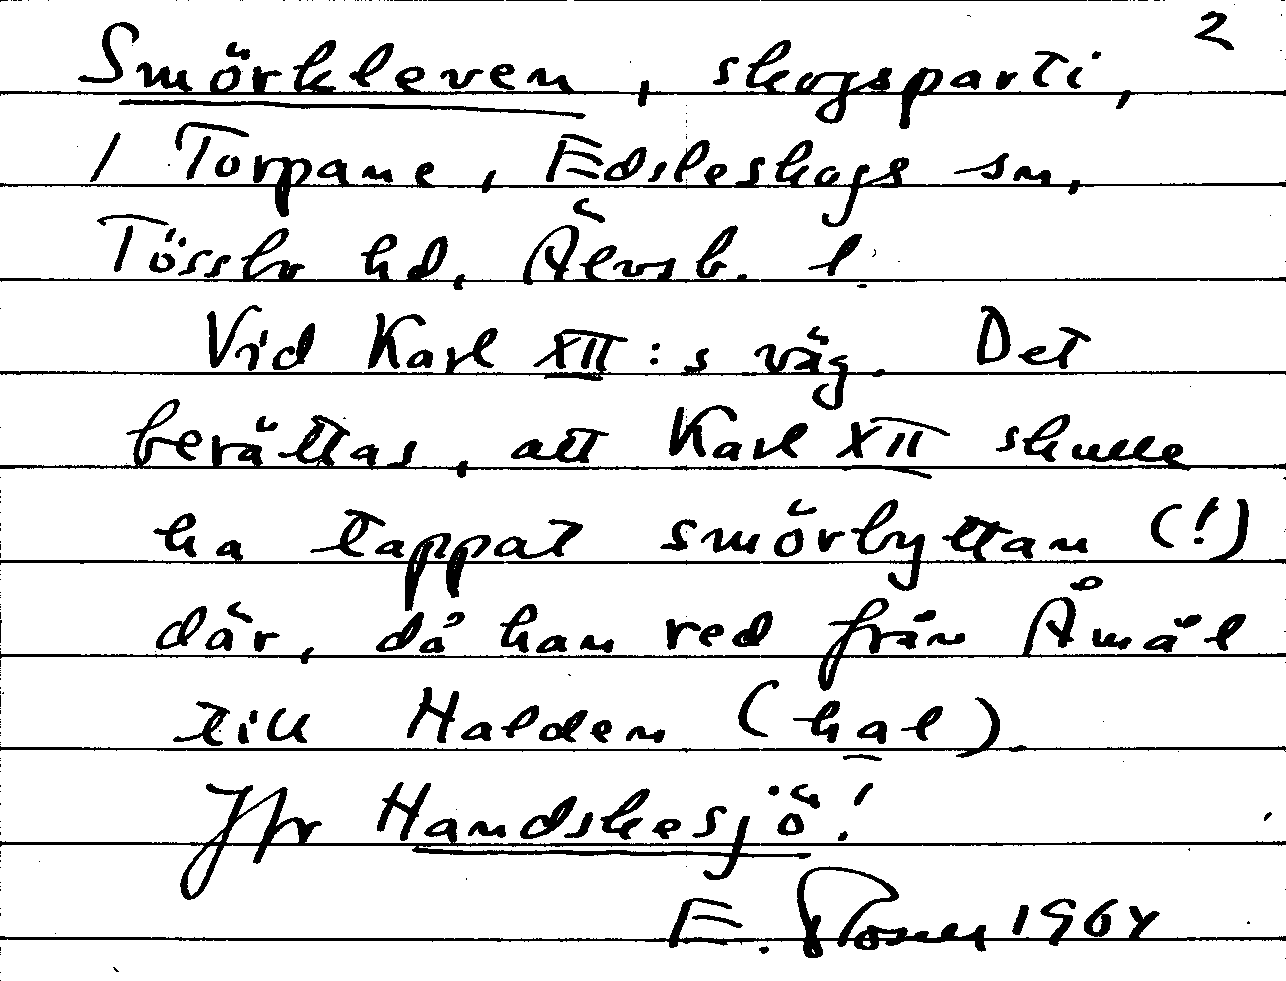 2
Smörkleven, skogsparti,
i Torpane, Edsleskogs sn,
Tössbo hd, Älvsb. l.
Vid Karl XII:s väg. Det
berättas, att Karl XII skulle
ha tappat smörbyttan (!)
där, då han red från Åmål
till Halden (hal).
Jfr Handskesjö!
E. 1964